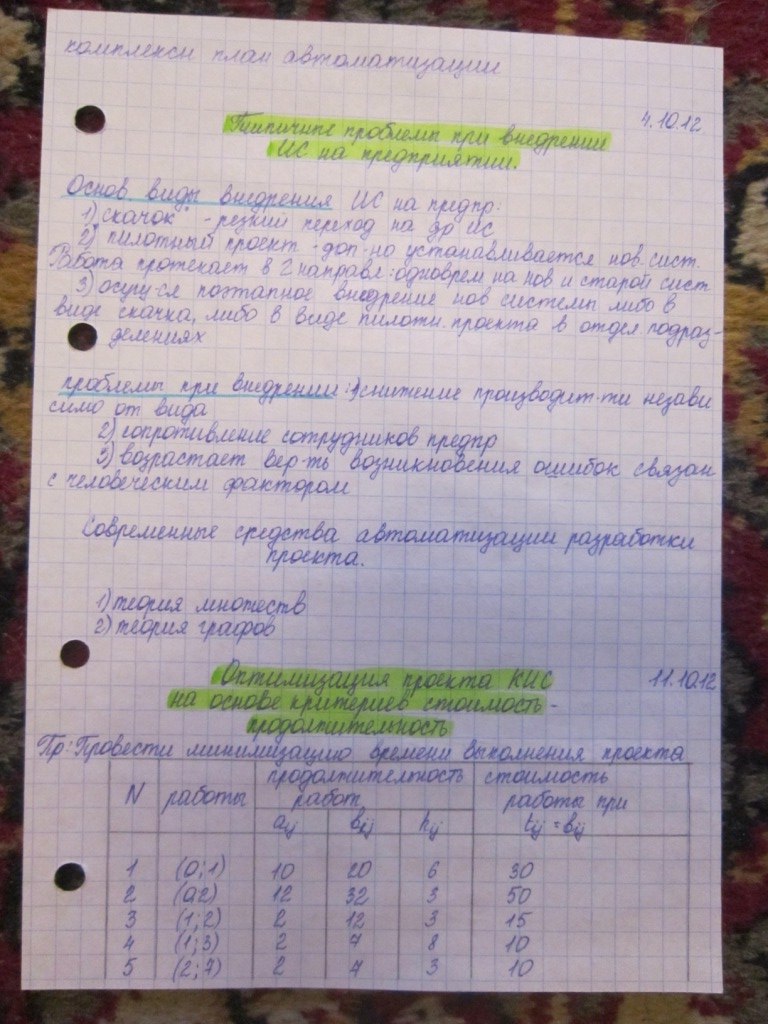 комплексн план автоматизации
4.10.12
Типичные проблемы при внедрении
ИС на предприятии.
Основ виды внедрения ИС на предпр:
1) "скачок" - резкий переход на др ИС
2) пилотный проект - доп-но устанавливается нов. сист.
Работа протекает в 2 направл: одноврем на нов и старой сист
3) осущ-ся поэтапное внедрение нов системы либо в
виде скачка, либо в виде пилотн. проекта в отдел подраз-
делениях
проблемы при внедрении: 1) снижение производит-ти незави
симо от вида
2) сопротивление сотрудников предпр
3) возрастает вер-ть возникновения ошибок связан
с человеческим фактором
Современные средства автоматизации разработки
проекта.
1) теория множеств
2) теория графов
Оптимизация проекта КИС 11.10.12
на основе критериев стоимость -
продолжительность
Пр: Провести минимизацию времени выполнения проекта
N работы продолжительность работ стоимость работы при
aij bij hij tij = bij
1 (0;1) 10 20 6 30
2 (0;2) 12 32 3 50
3 (1;2) 2 12 3 15
4 (1;3) 2 7 8 10
5 (2;7) 2 7 3 10